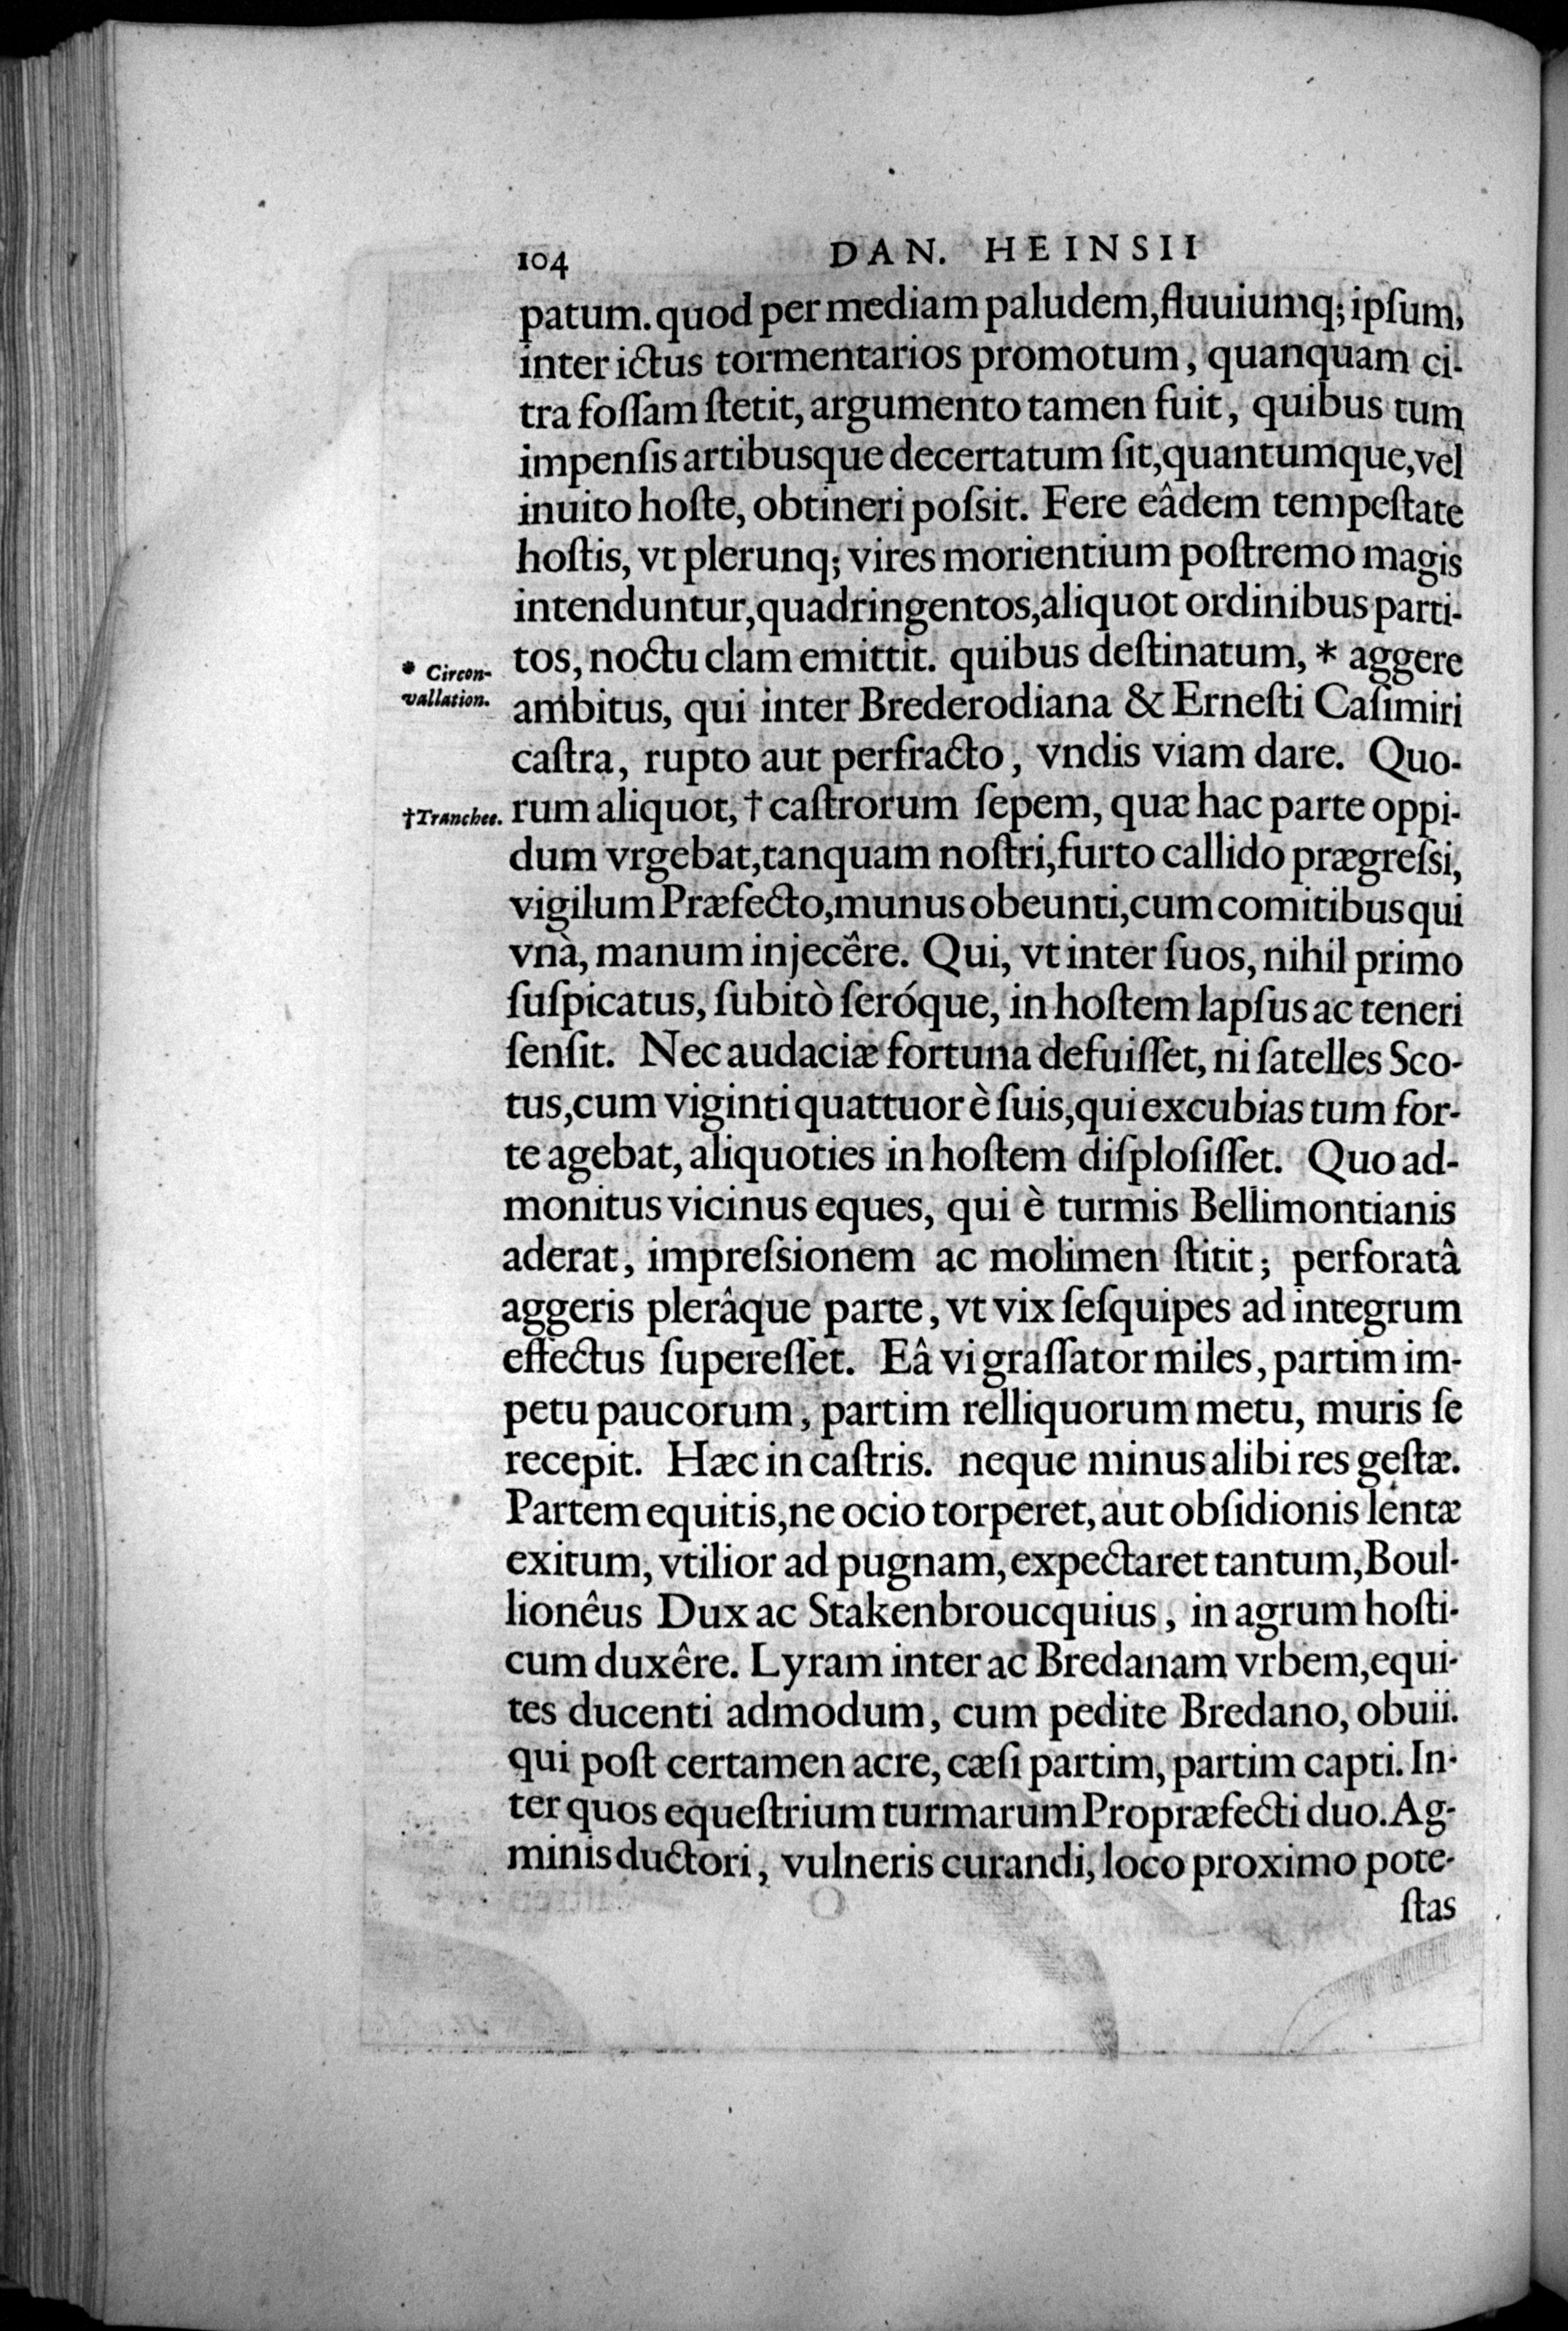 104 DAN. HEINSII
patum. quod per mediam paludem, fluuiumq; ipſum,
inter ictus tormentarios promotum, quanquam ci-
tra foſſam ſtetit, argumento tamen fuit, quibus tum
impenſis artibusque decertatum ſit, quantumque, vel
inuito hoſte, obtineri poſsit. Fere eâdem tempeſtate
hoſtis, vt plerunq; vires morientium poſtremo magis
intenduntur, quadringentos, aliquot ordinibus parti-
tos, noctu clam emittit. quibus deſtinatum, * aggere
* Circon-
vallation.
ambitus, qui inter Brederodiana & Erneſti Caſimiri
caſtra, rupto aut perfracto, vndis viam dare. Quo-
†Tranchee.
rum aliquot, † caſtrorum ſepem, quæ hac parte oppi-
dum vrgebat, tanquam noſtri, furto callido prægreſsi,
vigilum Præfecto, munus obeunti, cum comitibus qui
vnà, manum injecêre. Qui, vt inter ſuos, nihil primo
ſuſpicatus, ſubitò ſeróque, in hoſtem lapſus ac teneri
ſenſit. Nec audaciæ fortuna defuiſſet, ni ſatelles Sco-
tus, cum viginti quattuor è ſuis, qui excubias tum for-
te agebat, aliquoties in hoſtem diſploſiſſet. Quo ad-
monitus vicinus eques, qui è turmis Bellimontianis
aderat, impreſsionem ac molimen ſtitit; perforatâ
aggeris plerâque parte, vt vix ſeſquipes ad integrum
effectus ſupereſſet. Eâ vi graſſator miles, partim im-
petu paucorum, partim relliquorum metu, muris ſe
recepit. Hæc in caſtris. neque minus alibi res geſtæ.
Partem equitis, ne ocio torperet, aut obſidionis lentæ
exitum, vtilior ad pugnam, expectaret tantum, Boul-
lionêus Dux ac Stakenbroucquius, in agrum hoſti-
cum duxêre. Lyram inter ac Bredanam vrbem, equi-
tes ducenti admodum, cum pedite Bredano, obuii.
qui poſt certamen acre, cæſi partim, partim capti. In-
ter quos equeſtrium turmarum Propræfecti duo. Ag-
minis ductori, vulneris curandi, loco proximo pote-
ſtas